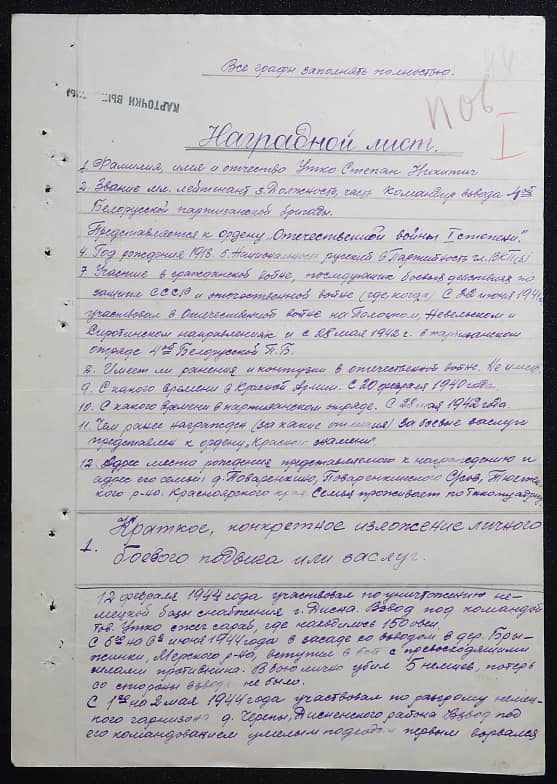 Все графы заполнять полностью.
КАРТОЧКИ
ПОВ
I
Наградной лист.
1. Фамилия, имя и отчество Утко Степан Никитич
2. Звание мл. лейтенант 3. Должность, часть командир взвода 4ой
Белорусской партизанской бригады.
Представляется к ордену „Отечественной войны I степени".
4. Год рождения 1918. 5. Национальность русский 6. Партийность чл. ВКП(б)
7. Участие в гражданской войне, последующих боевых действиях по
защите СССР и отечественной войне (где когда) С 22 июня 1941г.
участвовал в Отечественной войне на Полоцком, Невельском и
Сиротинском направлениях и с 28 мая 1942 г. в партизанском
отряде 4ой Белорусской П.Б.
8. Имеет ли ранения и контузии в отечественной войне. Не имеет
9. С какого времени в Красной Армии. С 20 февраля 1940 года
10. С какого времени в партизанском отряде. С 28 мая 1942 года.
11. Чем ранее награжден (за какие отличия) За боевые заслуги
представлен к ордену „Красное знамение"
12. Адрес места рождения представляемого к награждению и
адрес его семьи: д. Поваренкино, Поваренкинского С/сов,
кого р-на. Красноярского края Семья проживает по тому адресу
1. Краткое, конкретное изложение личного
боевого подвига или заслуг.
12 февраля 1944 года участвовал по уничтожению не-
мецкой базы снабжения г. Дисна. Взвод под командой
тов. Утко сжег сарай, где находилось 150
С 5го на 6е июня 1944 года в засаде со взводом в дер. Бры-
жинки, Мерского р-на вступил в бой с превосходящими
силами противника. В бою лично убил 5 немцев, потерь
со стороны взвода не было.
С 1го на 2 мая 1944 года участвовал по разгрому немец-
кого гарнизона д. Черепы, Дисненского района Взвод под
его командованием умелым подходом первым ворвался